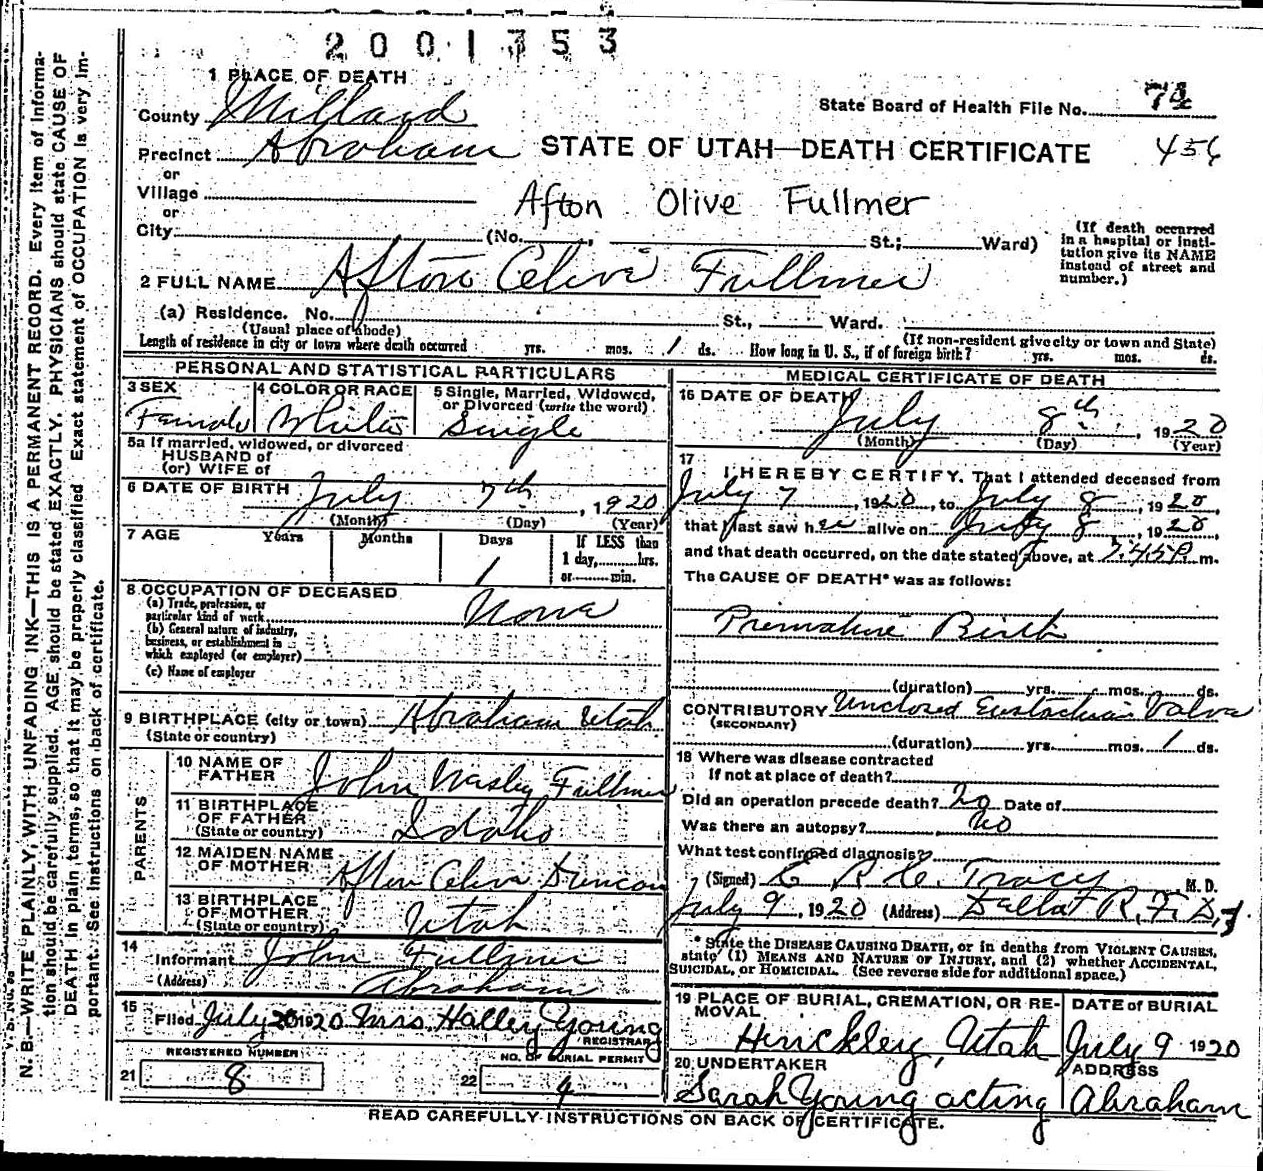 2001753
1 PLACE OF DEATH
State Board of Health File No. 74
County Millard
456
Precinct Abraham
STATE OF UTAH—DEATH CERTIFICATE
or
Village
Afton Olive Fullmer
or
City (No. , St.; Ward)
(If death occurred in a hospital or insti-
tution give its NAME
instead of street and
number.)
2 FULL NAME Afton Olive Fullmer
(a) Residence. No. St., Ward.
(Usual place of abode) (If non-resident give city or town and State)
Length of residence in city or town where death occurred yrs. mos. 1 ds. How long in U. S., if of foreign birth? yrs. mos. ds.
PERSONAL AND STATISTICAL PARTICULARS
3 SEX Female
4 COLOR OR RACE White
5 Single, Married, Widowed,
or Divorced (write the word)
Single
5a If married, widowed, or divorced
HUSBAND of
(or) WIFE of
6 DATE OF BIRTH July 7th, 1920
(Month) (Day) (Year)
7 AGE Years Months Days If LESS than
1 day, hrs.
1 or min.
8 OCCUPATION OF DECEASED
(a) Trade, profession, or
particular kind of work None
(b) General nature of industry,
business, or establishment in
which employed (or employer)
(c) Name of employer
9 BIRTHPLACE (city or town) Abraham Utah
(State or country)
PARENTS
10 NAME OF
FATHER John Wasley Fullmer
11 BIRTHPLACE
OF FATHER
(State or country) Idaho
12 MAIDEN NAME
OF MOTHER Afton Olive Duncan
13 BIRTHPLACE
OF MOTHER
(State or country) Utah
14
Informant John Fullmer
(Address) Abraham
15
Filed July 20 1920 Mrs. Halley Young
REGISTRAR
REGISTERED NUMBER
21 8
NO. OF BURIAL PERMIT
22 4
MEDICAL CERTIFICATE OF DEATH
16 DATE OF DEATH
July 8th, 1920
(Month) (Day) (Year)
17
I HEREBY CERTIFY. That I attended deceased from
July 7, 1920, to July 8, 1920,
that I last saw her alive on July 8, 1920,
and that death occurred, on the date stated above, at 7.45 P. m.
The CAUSE OF DEATH* was as follows:
Premature Birth
(duration) yrs. mos. ds.
CONTRIBUTORY Unclosed Eustachian Valve
(SECONDARY)
(duration) yrs. mos. 1 ds.
18 Where was disease contracted
If not at place of death?
Did an operation precede death? No Date of
Was there an autopsy? No
What test confirmed diagnosis?
(Signed) E. R. C. Tracy M. D.
July 9, 1920 (Address) R. F. D.
* State the DISEASE CAUSING DEATH, or in deaths from VIOLENT CAUSES,
state (1) MEANS AND NATURE OF INJURY, and (2) whether ACCIDENTAL,
SUICIDAL, or HOMICIDAL. (See reverse side for additional space.)
19 PLACE OF BURIAL, CREMATION, OR RE-
MOVAL
Hinckley, Utah
DATE of BURIAL
July 9 1920
20 UNDERTAKER
Sarah Young acting
ADDRESS
Abraham
READ CAREFULLY INSTRUCTIONS ON BACK OF CERTIFICATE.
N. B.—WRITE PLAINLY, WITH UNFADING INK—THIS IS A PERMANENT RECORD. Every item of informa-
tion should be carefully supplied. AGE should be stated EXACTLY. PHYSICIANS should state CAUSE OF
DEATH in plain terms, so that it may be properly classified. Exact statement of OCCUPATION is very im-
portant. See instructions on back of certificate.